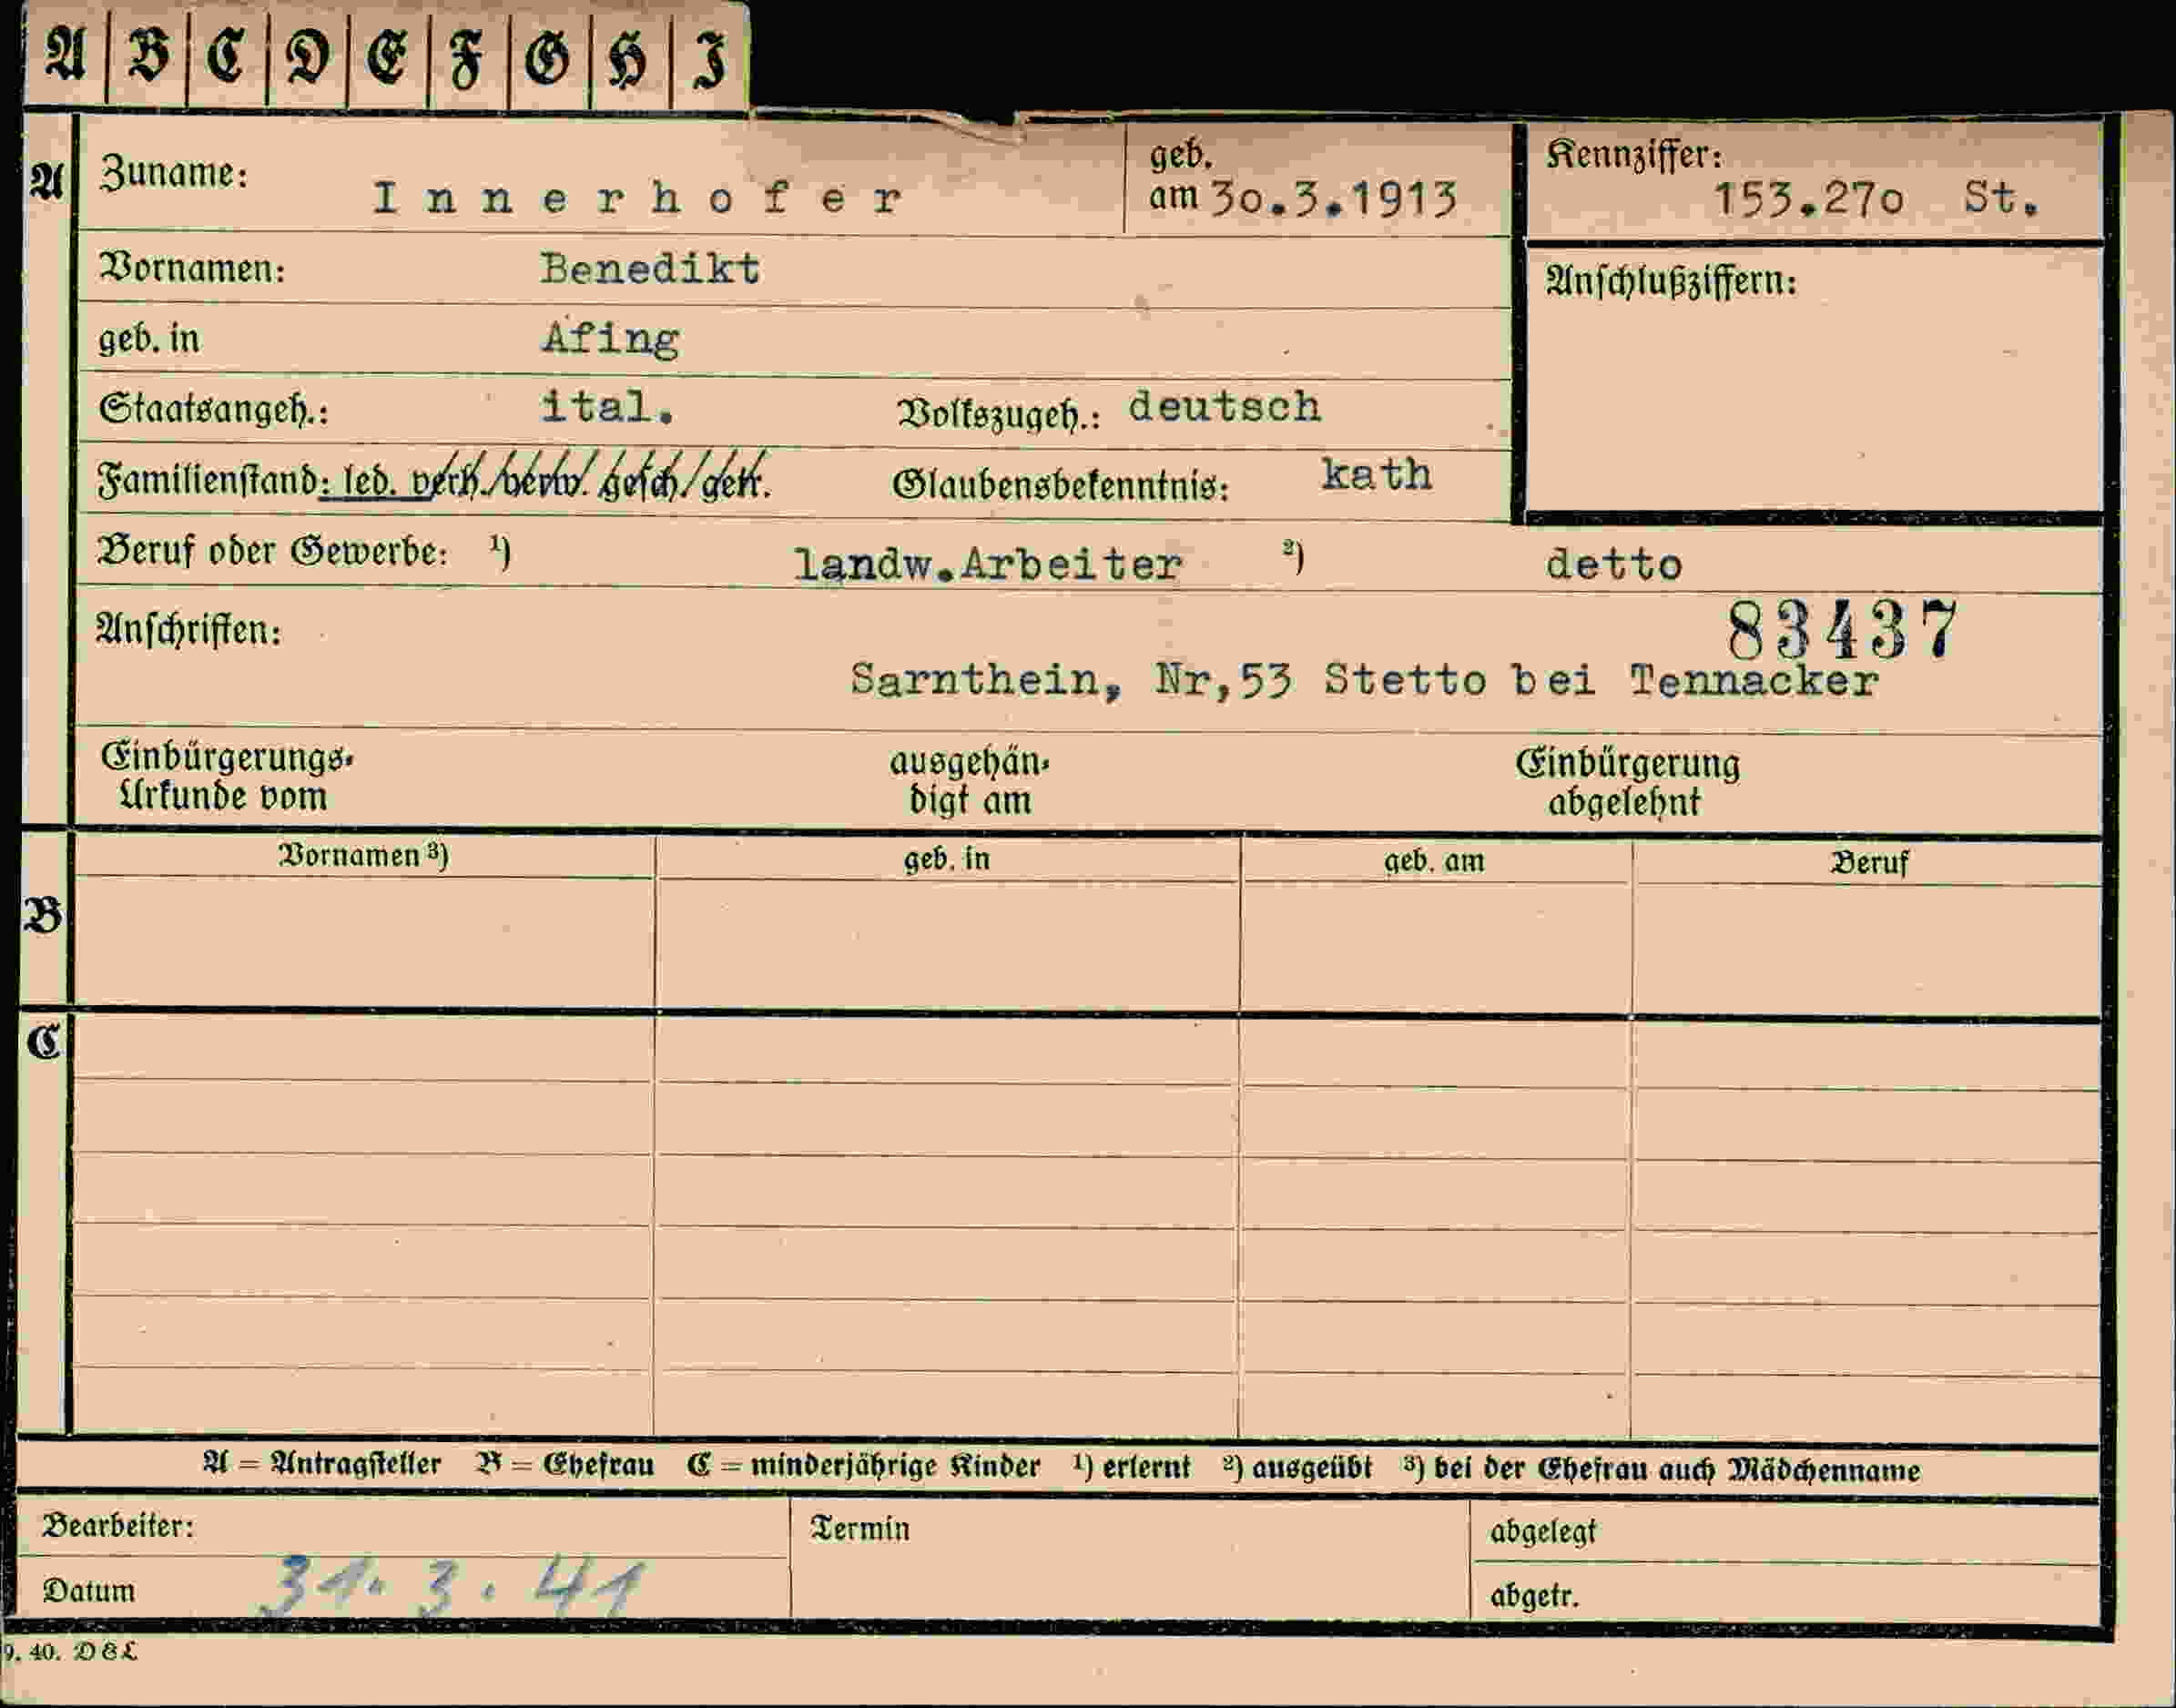 A B C D E F G H I
A Zuname: Innerhofer geb. am 3o.3.1913 Kennziffer: 153.27o St.
Vornamen: Benedikt Anschlußziffern:
geb. in Afing
Staatsangeh.: ital. Volkszugeh.: deutsch
Familienstand: led. verh. verw. gesch. getr. Glaubensbekenntnis: kath
Beruf oder Gewerbe: 1) landw.Arbeiter 2) detto
Anschriften: 83437
Sarnthein, Nr,53 Stetto bei Tennacker
Einbürgerungs- ausgehän- Einbürgerung
Urkunde vom digt am abgelehnt
Vornamen 3) geb. in geb. am Beruf
B
C
A = Antragsteller B = Ehefrau C = minderjährige Kinder 1) erlernt 2) ausgeübt 3) bei der Ehefrau auch Mädchenname
Bearbeiter: Termin abgelegt
Datum 31. 3. 41 abgetr.
9. 40. D&L